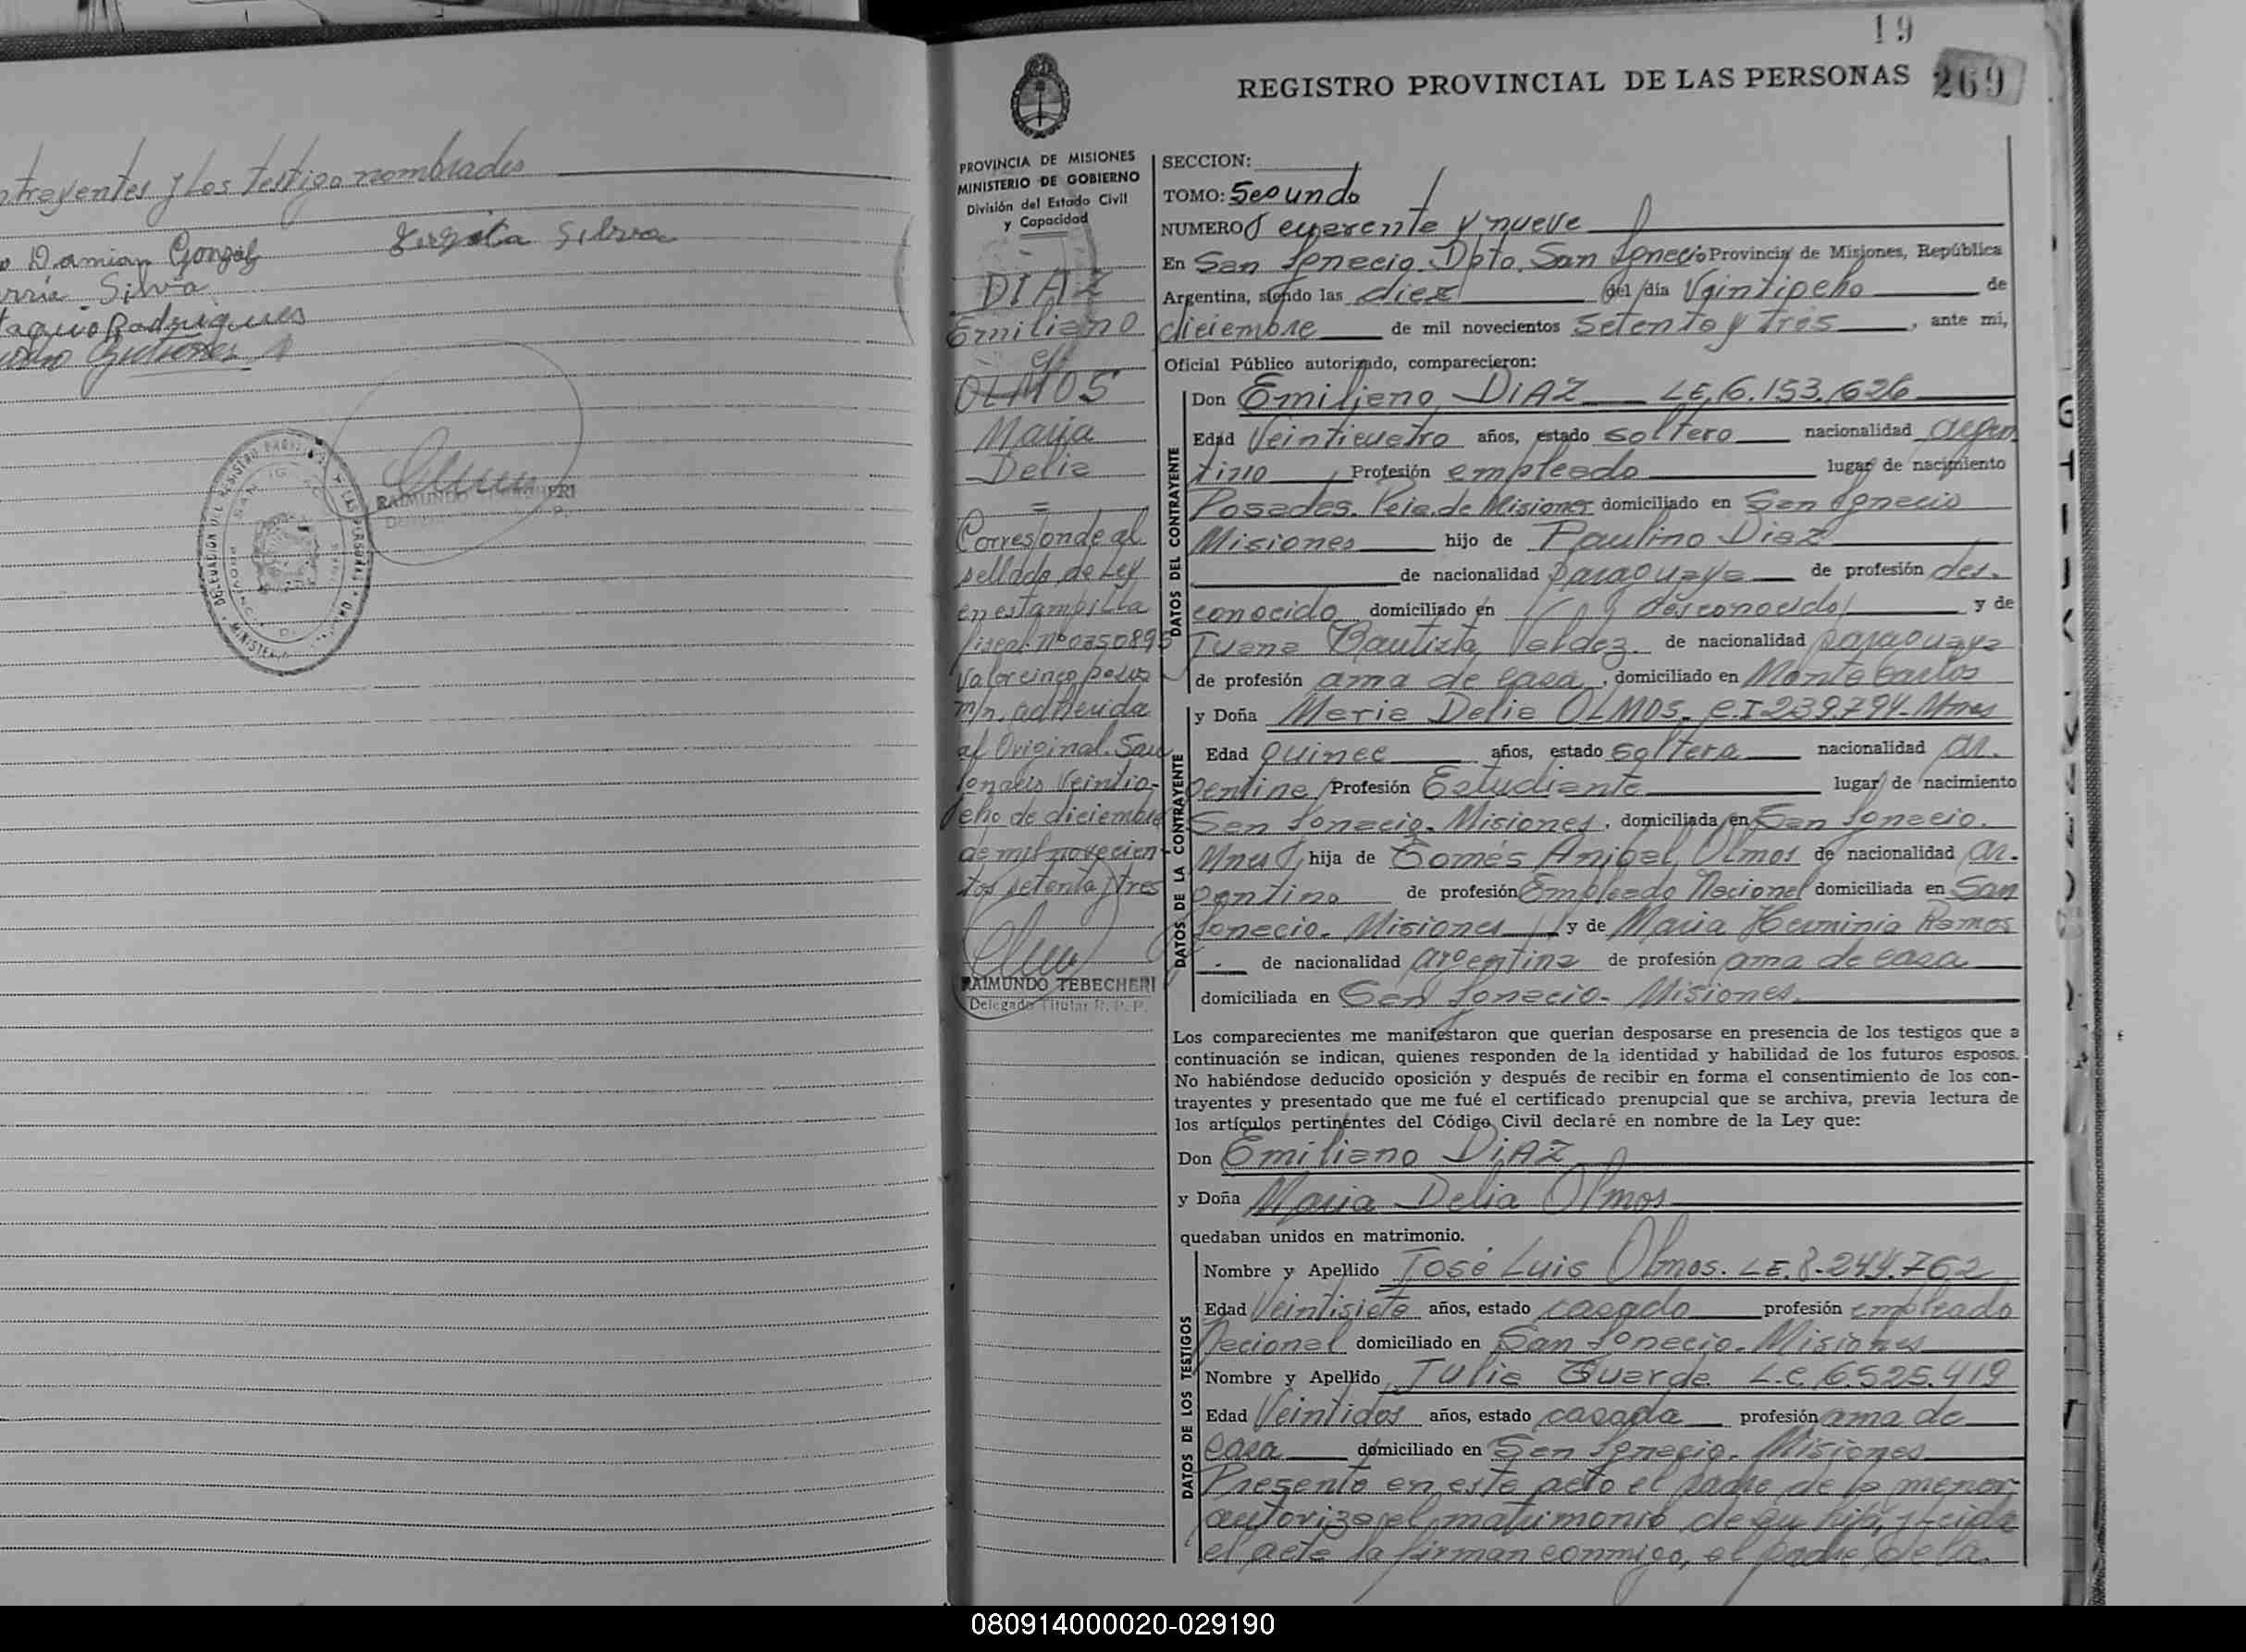 ntrayentes y los testigo nombrados
Damian Gonzalez
Silva
Silva
Rodrigues
Gutierrez
RAIMUNDO TEBECHERI
19
REGISTRO PROVINCIAL DE LAS PERSONAS 269
PROVINCIA DE MISIONES
MINISTERIO DE GOBIERNO
División del Estado Civil
y Capacidad
DIAZ
Emiliano
c/
OLMOS
Maria
Delia
=
Corresponde al
sellado de Ley
en estampilla
fiscal Nº 0350895
valor cinco pesos
m/n. adherida
al Original. San
Ignacio Veintio-
cho de diciembre
de mil novecien-
tos setenta y tres
RAIMUNDO TEBECHERI
Delegado Titular R. P. P.
SECCION:
TOMO: Segundo
NUMERO cuarenta y nueve
En San Ignacio. Dpto. San Ignacio Provincia de Misiones, República
Argentina, siendo las diez del día Veintiocho de
diciembre de mil novecientos setenta y tres, ante mi,
Oficial Público autorizado, comparecieron:
DATOS DEL CONTRAYENTE
Don Emiliano DIAZ LE. 6.153.626
Edad Veinticuatro años, estado soltero nacionalidad argen
tino Profesión empleado lugar de nacimiento
Posadas. Pcia. de Misiones domiciliado en San Ignacio
Misiones hijo de Paulino Diaz
de nacionalidad paraguaya de profesión des-
conocido domiciliado en desconocido y de
Juana Bautista Valdez. de nacionalidad paraguaya
de profesión ama de casa, domiciliado en Montecarlos
DATOS DE LA CONTRAYENTE
y Doña Maria Delia OLMOS. C.I 239.794- Mnes
Edad quince años, estado soltera nacionalidad ar.
gentina Profesión Estudiante lugar de nacimiento
San Ignacio. Misiones, domiciliada en San Ignacio.
Mnes hija de Tomés Anibal Olmos de nacionalidad ar.
gentino de profesión Empleado Nacional domiciliada en San
Ignacio. Misiones y de Maria Herminia Ramos
de nacionalidad argentina de profesión ama de casa
domiciliada en San Ignacio- Misiones.
Los comparecientes me manifestaron que querían desposarse en presencia de los testigos que a
continuación se indican, quienes responden de la identidad y habilidad de los futuros esposos.
No habiéndose deducido oposición y después de recibir en forma el consentimiento de los con-
trayentes y presentado que me fué el certificado prenupcial que se archiva, previa lectura de
los artículos pertinentes del Código Civil declaré en nombre de la Ley que:
Don Emiliano DIAZ
y Doña Maria Delia Olmos
quedaban unidos en matrimonio.
DATOS DE LOS TESTIGOS
Nombre y Apellido José Luis Olmos. LE. 8.244.762
Edad Veintisiete años, estado casado profesión empleado
Nacional domiciliado en San Ignacio. Misiones
Nombre y Apellido Julia L.C. 6.525.419
Edad Veintidos años, estado casada profesión ama de
casa domiciliado en San Ignacio. Misiones
Presente en este acto el padre de la menor
autoriza el matrimonio de su hija, y leida
el acta la firman conmigo, el padre de la
080914000020-029190